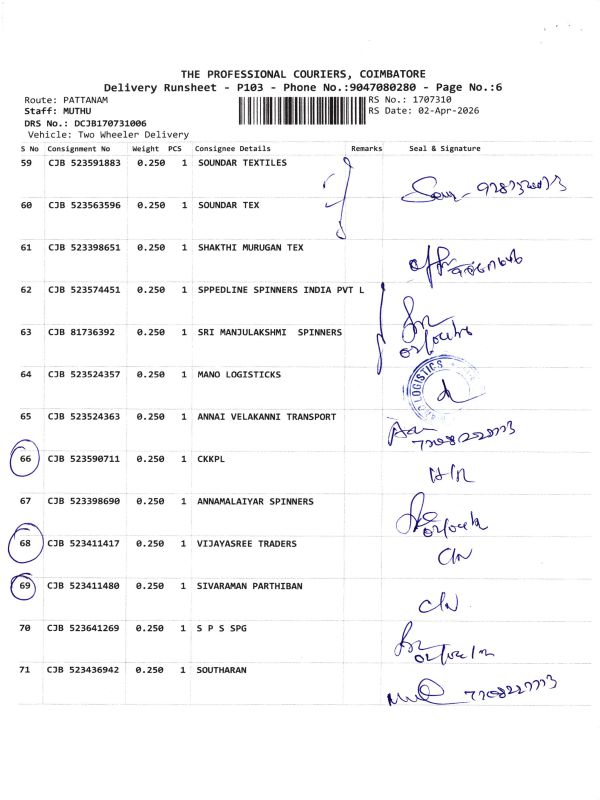 THE PROFESSIONAL COURIERS, COIMBATORE
Delivery Runsheet - P103 - Phone No.:9047080280 - Page No.:6
Route: PATTANAM
RS No.: 1707310
Staff: MUTHU
RS Date: 02-Apr-2026
DRS No.: DCJB170731006
Vehicle: Two Wheeler Delivery
S No Consignment No Weight PCS Consignee Details Remarks Seal & Signature
59 CJB 523591883 0.250 1 SOUNDAR TEXTILES
60 CJB 523563596 0.250 1 SOUNDAR TEX
61 CJB 523398651 0.250 1 SHAKTHI MURUGAN TEX
62 CJB 523574451 0.250 1 SPPEDLINE SPINNERS INDIA PVT L
63 CJB 81736392 0.250 1 SRI MANJULAKSHMI SPINNERS
64 CJB 523524357 0.250 1 MANO LOGISTICKS
LOGISTICS
65 CJB 523524363 0.250 1 ANNAI VELAKANNI TRANSPORT
66 CJB 523590711 0.250 1 CKKPL
67 CJB 523398690 0.250 1 ANNAMALAIYAR SPINNERS
68 CJB 523411417 0.250 1 VIJAYASREE TRADERS
69 CJB 523411480 0.250 1 SIVARAMAN PARTHIBAN
70 CJB 523641269 0.250 1 S P S SPG
71 CJB 523436942 0.250 1 SOUTHARAN